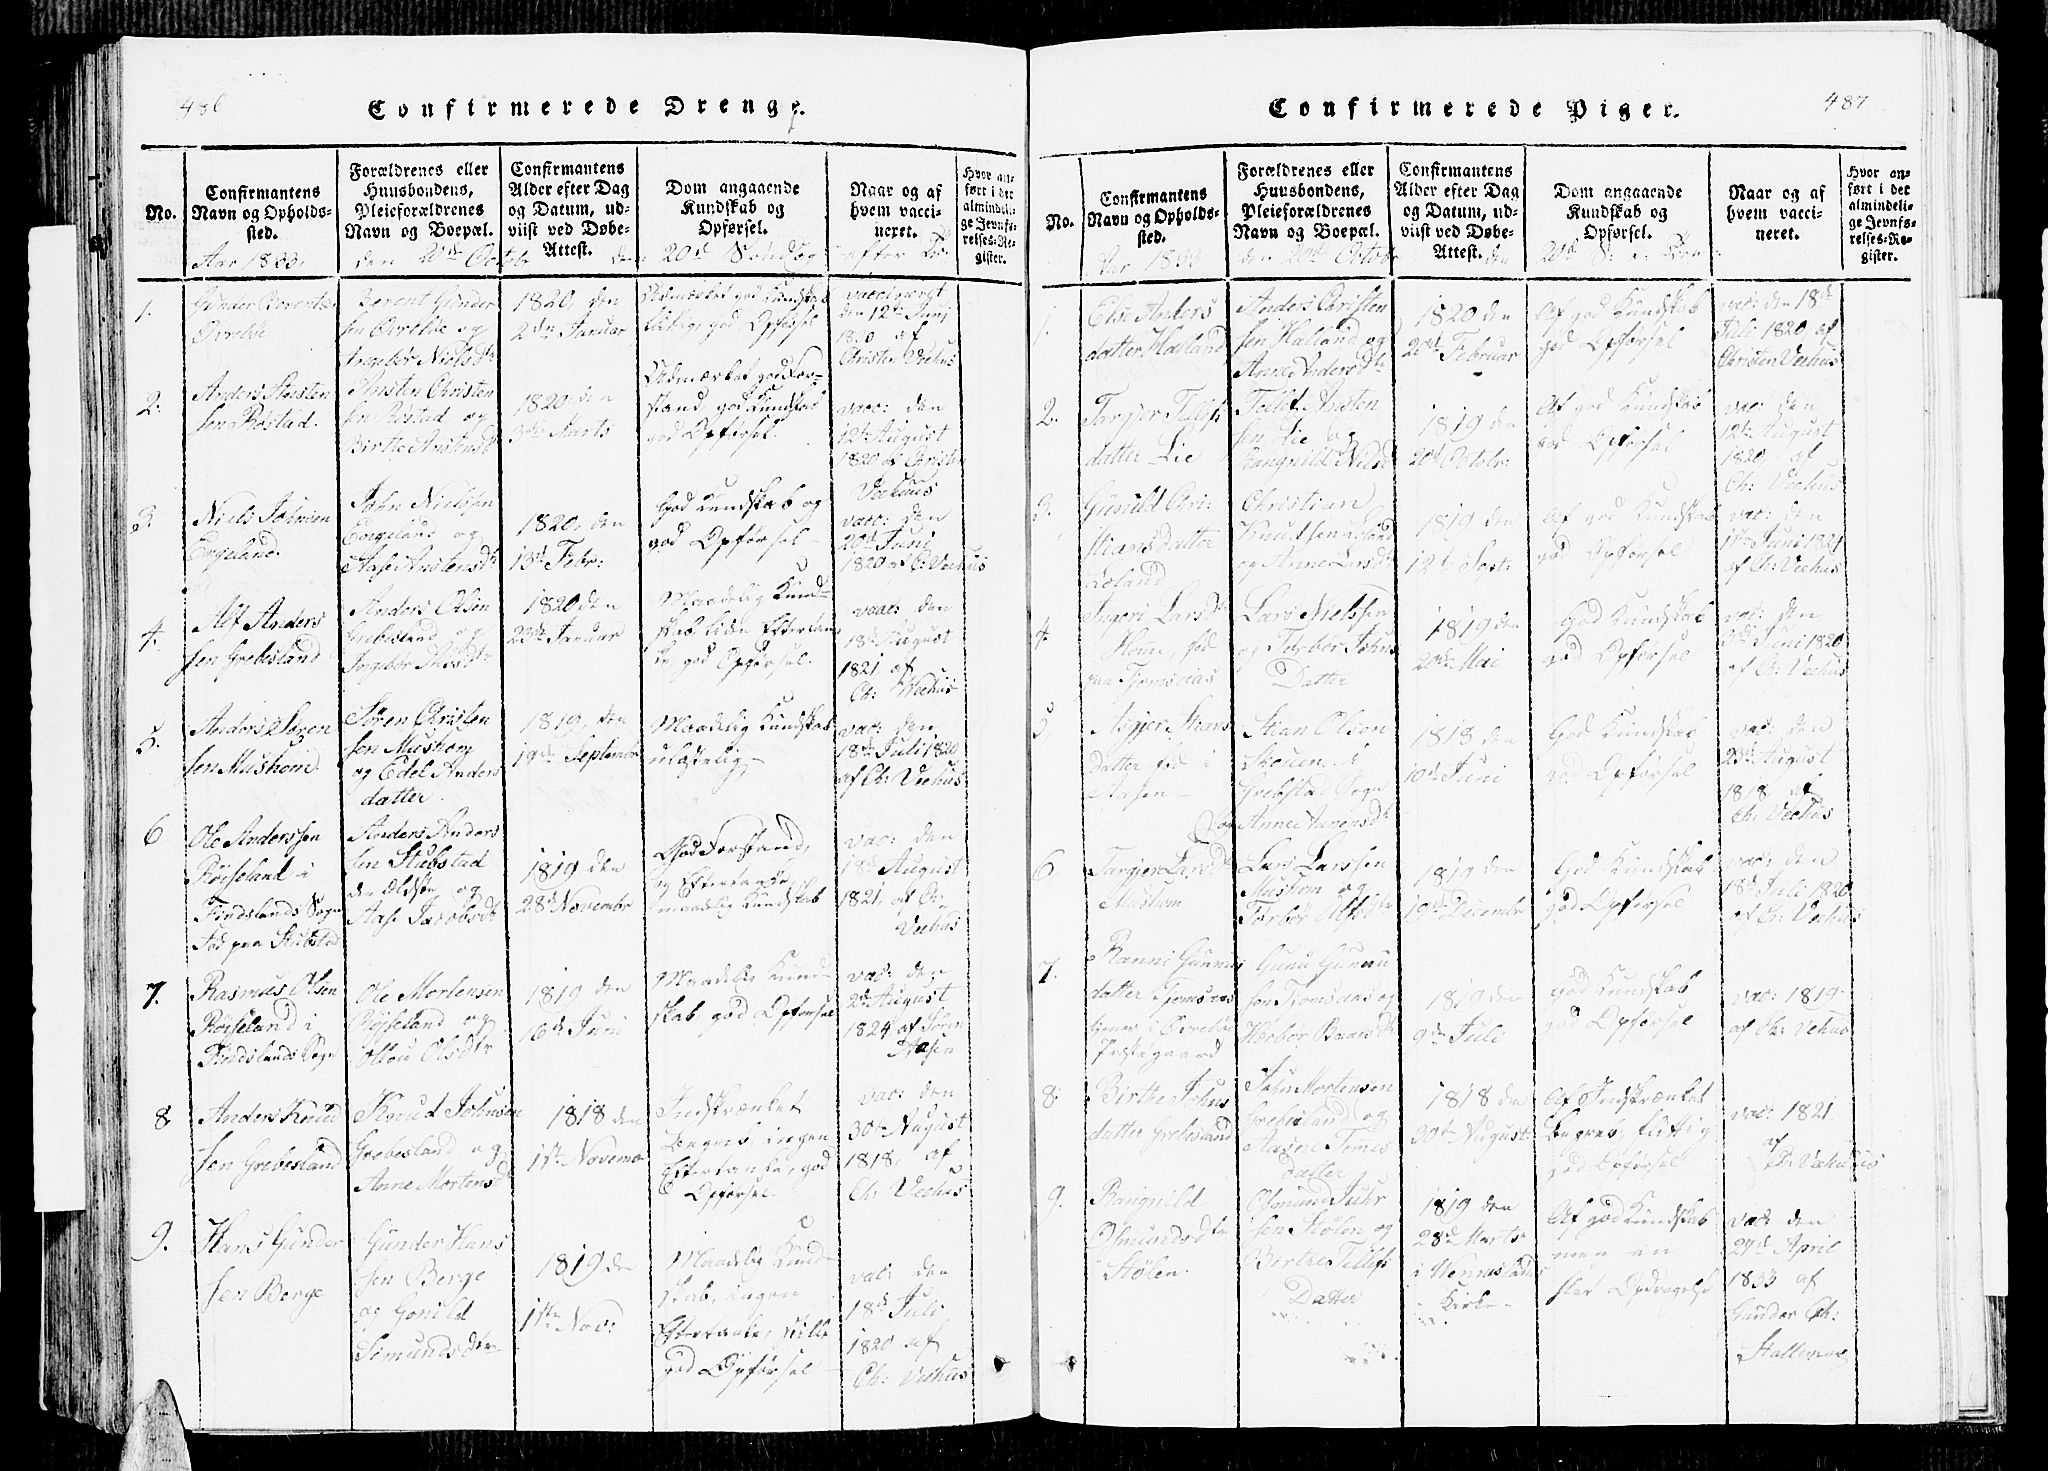 486
Confirmerede Drenge.
No.
Confirmantens
Navn og Opholds-
sted.
Forældrenes eller
Huusbondens,
Pleieforældrenes
Navn og Boepæl.
Confirmantens
Alder efter Dag
og Datum, ud-
viist ved Døbe-
Attest.
Dom angaaende
Kundskab og
Opførsel.
Naar og af
hvem vacci-
neret.
Hvor an-
ført i det
almindeli-
ge Jevnfø-
relses-Re-
gister.
Aar 1833. den 20de Octobr den 20de Søndag efter
1.
Gunder Berents
Berent Gunder
sen og
Ingebor Nielsdtr
1820, den
2den Januar
Udmærket god Kundskab
god Opførsel
vaccineret
den 12te Juni
1820 af
Christen Veehus
2.
Anders Austen
sen Røstad.
Austen Christen
sen Røstad og
Birthe Anstensdt
1820 den
3die Marts
Udmærket god For-
stand, god Kundskab
god Opførsel.
vacc: den
12te August
1820 af Christen
Veehuus
3.
Niels Johnsen
Engeland.
John Nielsen
Engeland og
Aase Anstensdt
1820, den
13de Febr:
God Kundskab og
god Opførsel
vacc: den
20de Juni
1820 af C: Veehus
4.
Alf Anders
sen Grebesland
Anders Olsen
Grebesland og
Ingebor
1820 den
23de Januar
Maadelig Kund-
skab liden Eftertan
ke, god Opførsel.
vacc: den
18de August
1821 af
Ch: Veehus
5.
Anders Søren
sen Mushom.
Søren Christen
sen Mushom
og Edel Anders
datter.
1819, den
19de Septembr
Maadelig Kundskab
ulastelig
vac: den
18de Juli 1820
af Ch: Veehus
6
Ole Anderssen
Røiseland i
Findslands Sogn
Fød paa Stubstad
Anders Anders
sen Stubstad
den Ældste og
Aase Jacobsdt
1819 den
28de Novembr
God Forstand,
og Eftertanke,
maadelig Kundskab
vac: den
18de August
1821. af Ch,
Veehus
7.
Rasmus Olsen
Røiseland i
Findslands Sogn
Ole Mortensen
Røiseland og
Ollou Olsdtr
1819 den
16de Juni
Maadelig Kund-
skab god Opførsel
vac: den
2de August
1824 af Søren
Aasen
8
Anders Knud
sen Grebesland
Knud Johnsen
Grebesland og
Anne Mortensdt
1818 den
1ste Novembr
Indskrænket
Begreb, ingen
Eftertanke, god
Opførsel.
vac: den
30te August
1818, af
Ch: Veehus
9.
Hans Gunder
sen Berge
Gunder Hans
sen Berge
og Gonild
Simundsdtr
1819 den
1ste Nov:
Maadelig Kund
skab, ingen
Eftertanke, stille
god Opførsel
vac: den
18de Juli
1820 af
Ch: Veehus
487
Confirmerede Piger.
No.
Confirmantens
Navn og Opholds-
sted.
Forældrenes eller
Huusbondens,
Pleieforældrenes
Navn og Boepæl.
Confirmantens
Alder efter Dag
og Datum, ud-
viist ved Døbe-
Attest.
Dom angaaende
Kundskab og
Opførsel.
Naar og af
hvem vacci-
neret.
Hvor an-
ført i det
almindeli-
ge Jevnfø-
relses-Re-
gister.
Aar 1833 den 20de Octobr den 20de S: e:
1.
Else Anders
datter Halland
Anders Christen
sen Halland og
Anne Andersdtr
1820 den
20de Februar
Af god Kundskab
god Opførsel
vac: den 18de
Juli 1820 af
Christen Veehus
2.
Targjer Tellefs
datter Lie
Tellef Austen
sen Lie og
Rangnild Nilsd
1819 den
20de Octobr:
Af god Kundskab
god Opførsel
vac: den
12te August
1820 af
Ch: Veehus
3.
Gunild Chri:
stians datter
Loland
Christian
Knudsen Loland
og Anne Larsdt
1819 den
12te Sept:
Af god Kundskab
god Opførsel
vac: den
17de Juni 1821
af Ch: Veehus
4.
Ingeri Larsdtr
fød
paa Tjomsaas
Lars Nielssen
og Torbor Johns
Datter
1819 den
20de Mai
God Kundskab
god Opførsel
vac: den
3die Juni 1820
af Ch: Veehus
5
Asgjer Stians
datter fød i
Aasen
Stian Olsen
Skouen i
Grebstad Sogn
og Anne
1818 den
10de Juni
God Kundskab
god Opførsel
vac: den
23de August
1818 af
Ch: Veehus
6
Targjer Larsdt
Mushom
Lars Larssen
Mushom og
Torbor Alfsdtr
1819 den
19de Decembr
God Kundskab
god Opførsel
vac: den
18de Juli 1820
af Ch: Veehus
7.
Ranni Gunnu
datter Tjomsaas
tiener i Øvrebøe
Præstegaard
Gunu Gunnu
sen Tjomsaas og
Herbor Baarsdtr
1819 den
9de Juli
God Kundskab
god Opførsel
vac: 1819
af Ch: Vehus
8.
Birthe Johns
datter Grebesland
John Mortensen
Grebesland og
Aasne Tomes
Datter
1818 den
30te August:
Af Indskrænket
Begreb, flittig
god Opførsel
vac: 1821.
af
Ch: Veehuus
9.
Rangnild
Osmundsdtr
Stølen.
Osmund Juhr
sen Stølen og
Birthe Tellefs
Datter
1819 den
28de Marts
i Vennislands
Kirke
Af god Kundskab
men en
slet Opdragelse
vac: den
27de April
1833 af
Gunder Ch:
Stallemoe